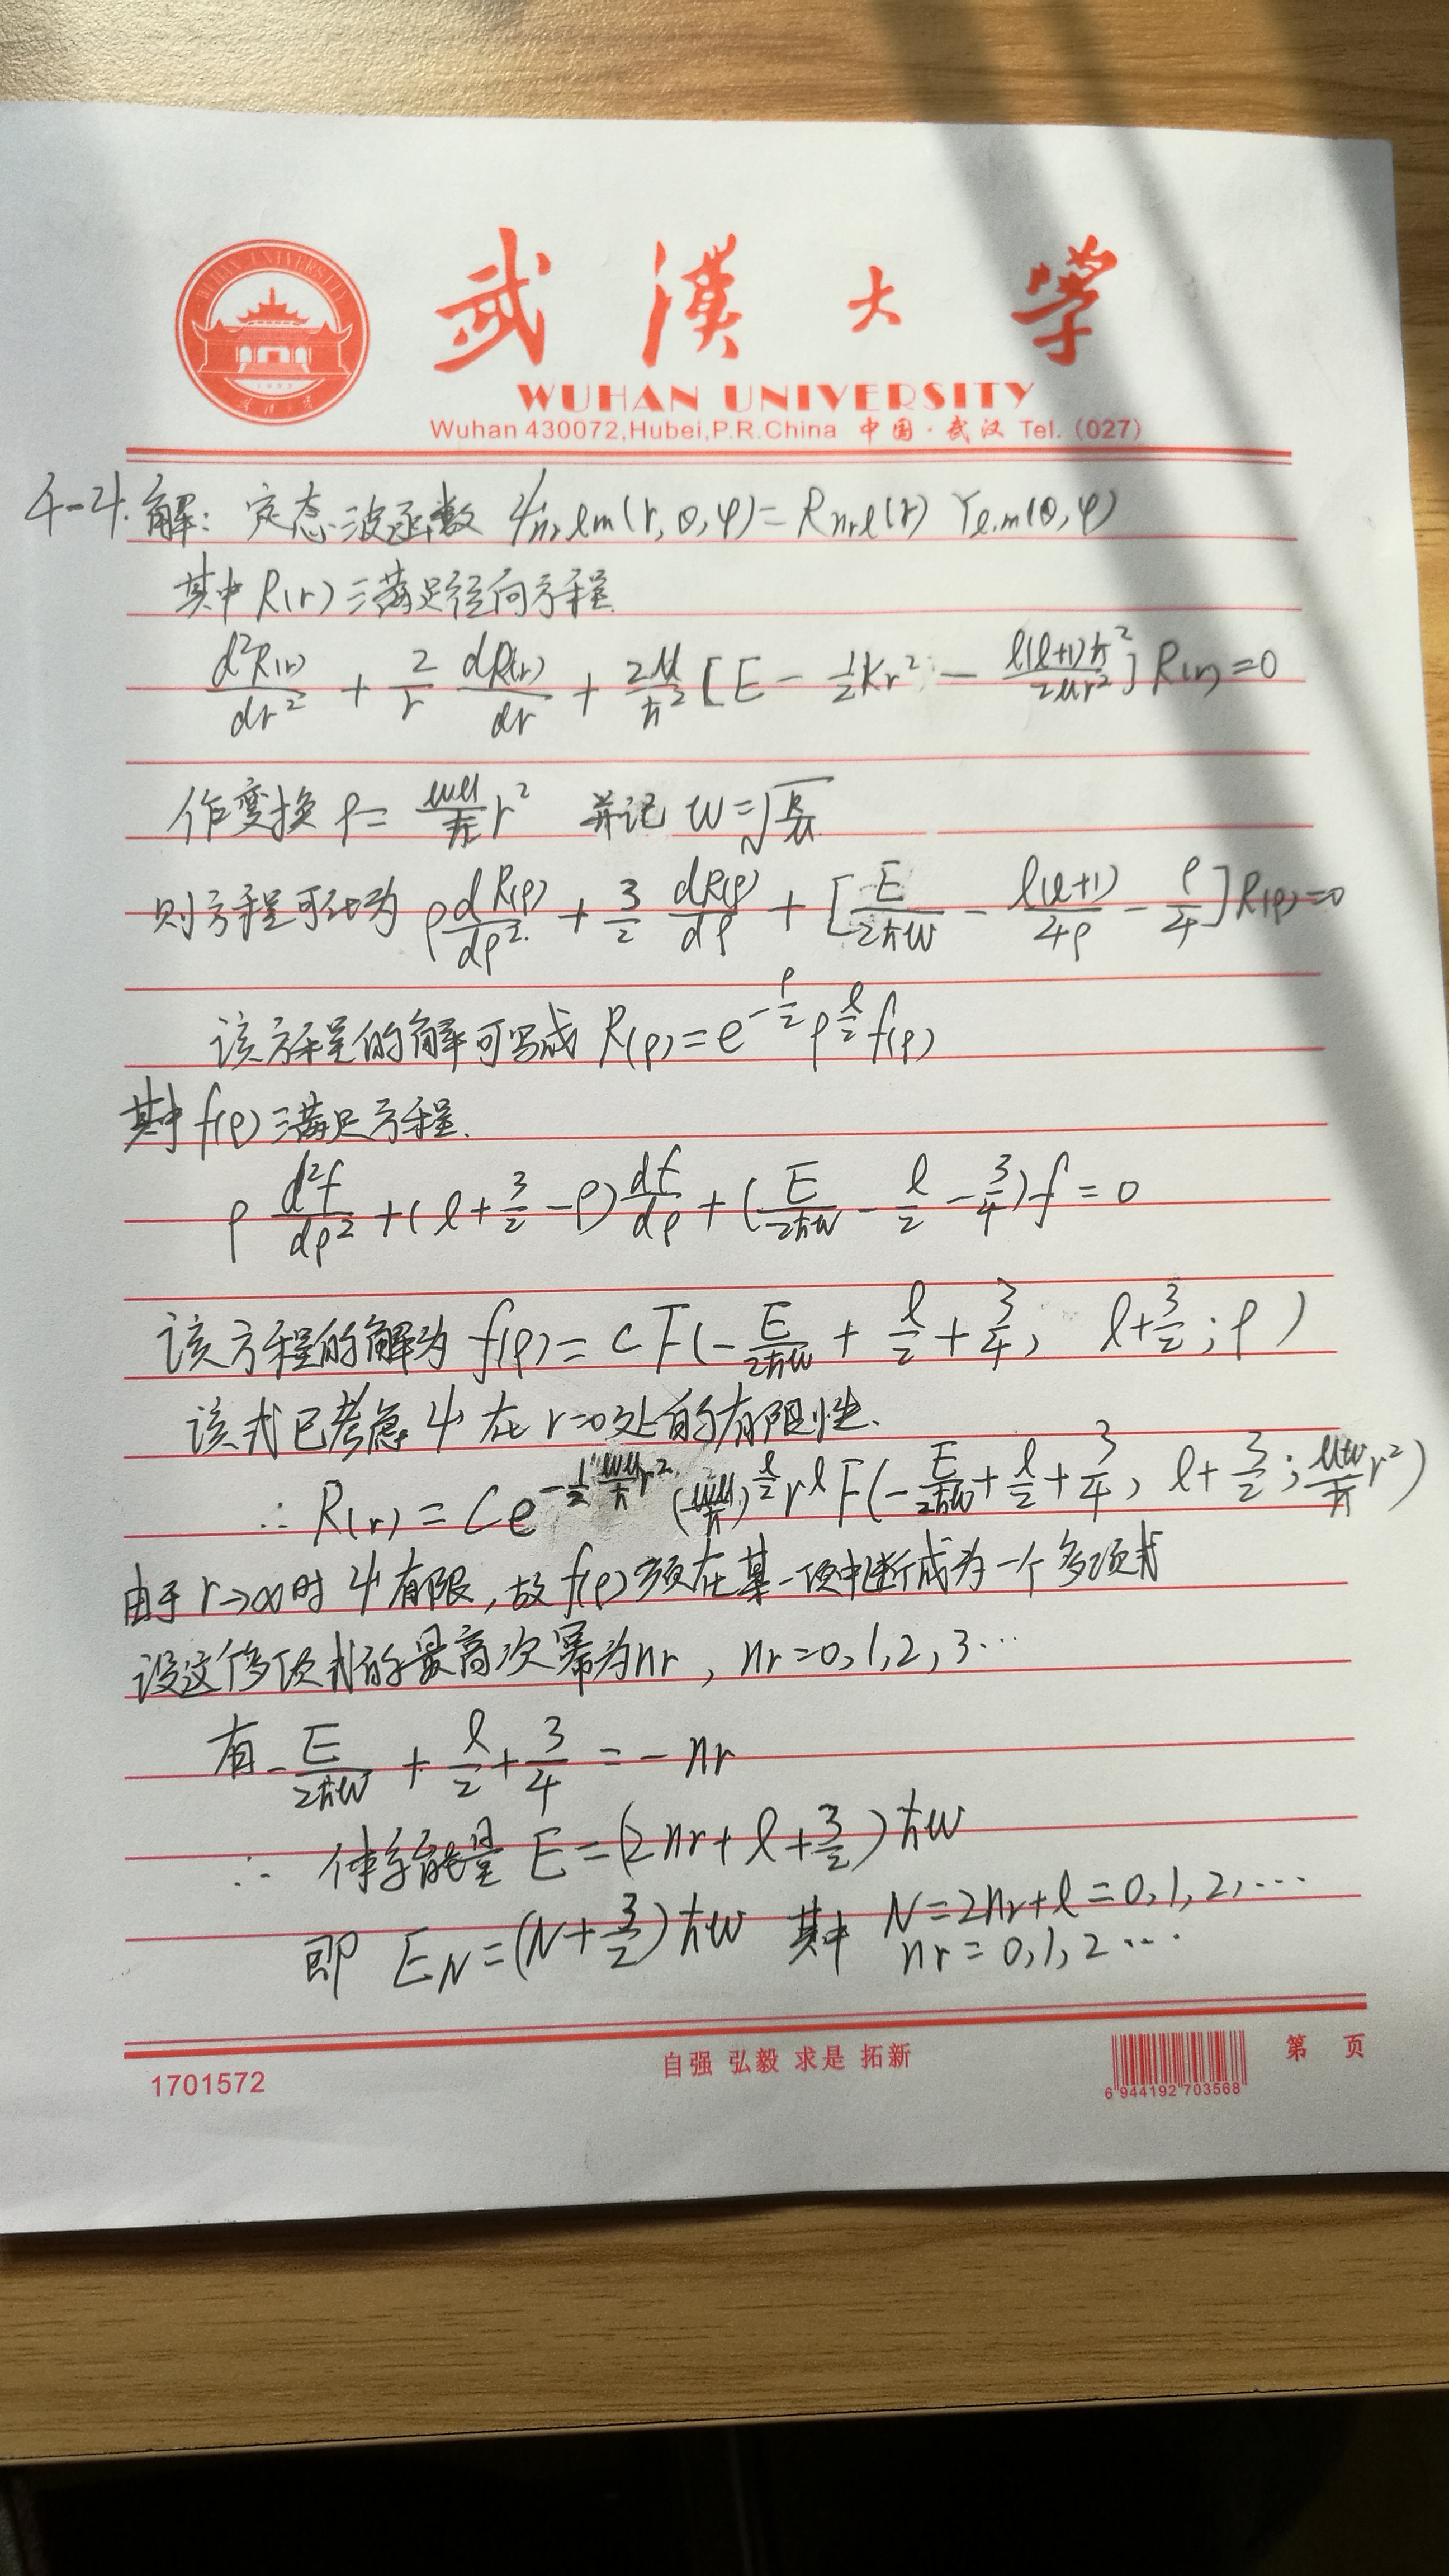 WUHAN UNIVERSITY
武漢大學
WUHAN UNIVERSITY
Wuhan 430072,Hubei,P.R.China 中国·武汉 Tel. (027)
4-4. 解: 定态波函数 ψnrlm(r,θ,φ)=Rnrl(r) Yl,m(θ,φ)
其中R(r)满足径向方程
d²R(r)/dr² + 2/r dR(r)/dr + 2μ/ħ² [E - ½Kr² - l(l+1)ħ²/2μr²] R(r)=0
作变换 ρ= ωμ/ħ r² 并记 ω=√k/μ
则方程可化为 ρ dR(ρ)/dρ² + 3/2 dR(ρ)/dρ + [E/2ħω - l(l+1)/4ρ - ρ/4] R(ρ)=0
该方程的解可写成 R(ρ)=e^(-ρ/2) ρ^(l/2) f(ρ)
其中f(ρ)满足方程.
ρ d²f/dρ² +( l+3/2 -ρ) df/dρ + (E/2ħω - l/2 - 3/4) f = 0
该方程的解为 f(ρ)= C F(-E/2ħω + l/2 + 3/4, l+3/2; ρ)
该式已考虑 ψ 在 r=0处的有限性.
∴ R(r) = Ce^(-½ ωμ/ħ r²) (ωμ/ħ)^(l/2) r^l F(-E/2ħω + l/2 + 3/4, l+3/2; μω/ħ r²)
由于 r→∞时 ψ 有限, 故 f(ρ)须在某一项中断成为一个多项式
设这个多项式的最高次幂为nr, nr=0,1,2,3…
有 -E/2ħω + l/2 + 3/4 = -nr
∴ 体系能量 E=(2nr+l+3/2)ħω
即 EN=(N+3/2)ħω 其中 N=2nr+l=0,1,2,…
nr=0,1,2…
1701572
自强 弘毅 求是 拓新
6 944192 703568
第 页